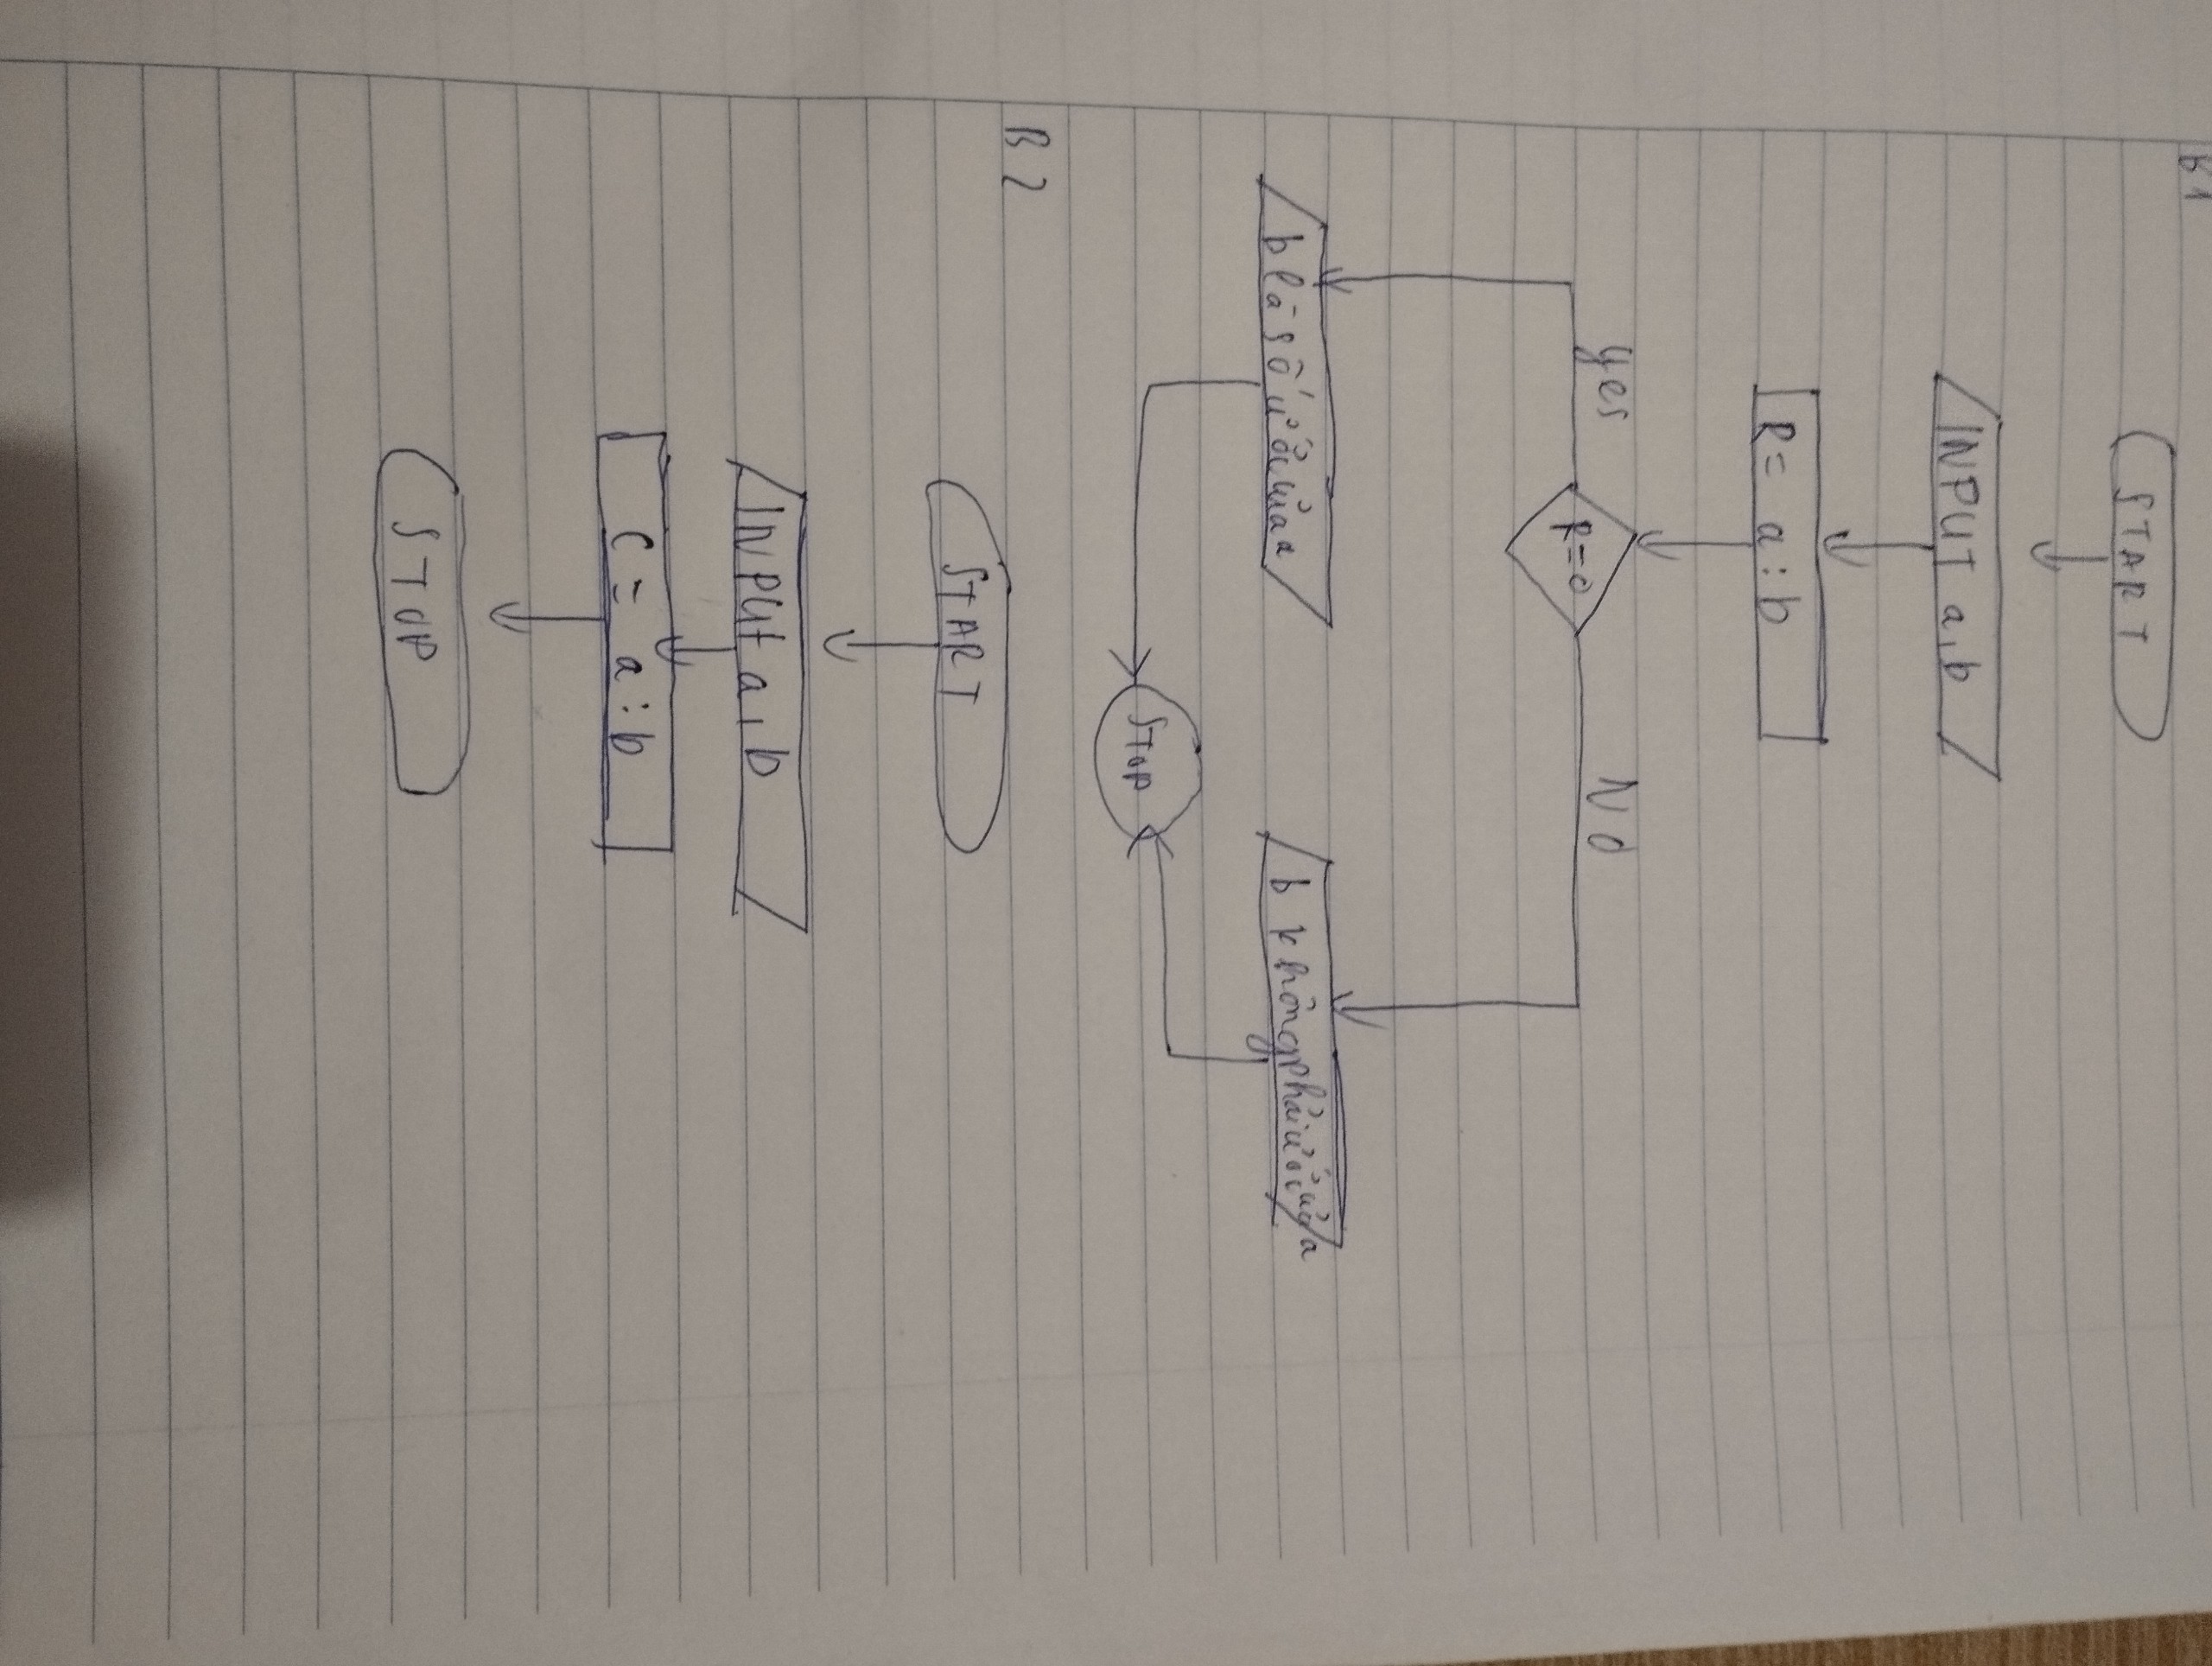 B1
START
INPUT a, b
R = a : b
R = 0
yes
No
b là số ước của a
b không phải ước của a
STOP
B2
START
INPUT a, b
C = a : b
STOP